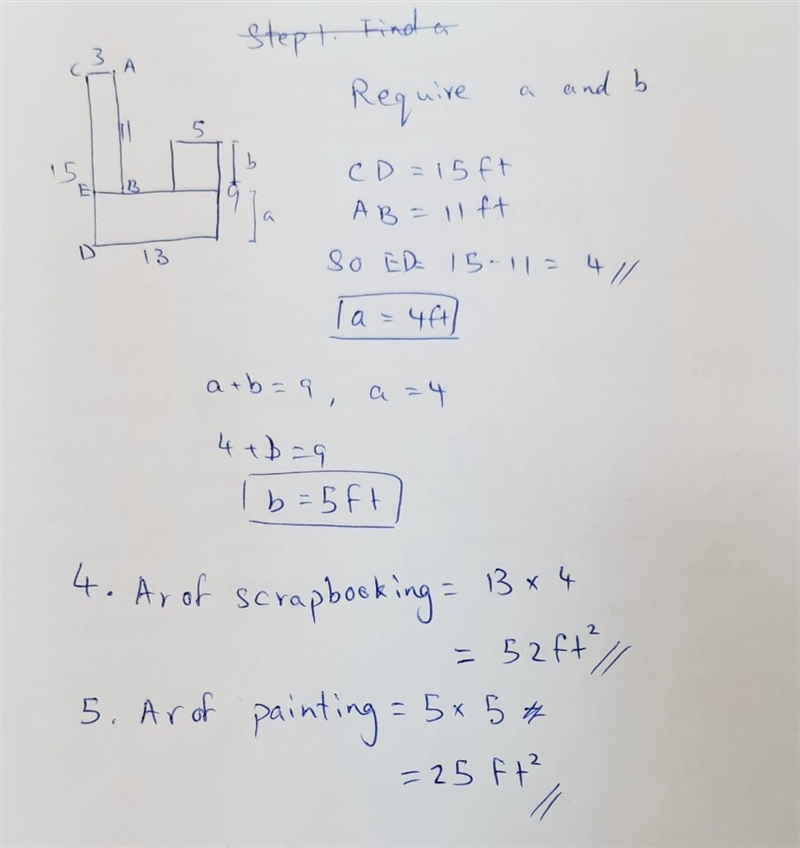 Step 1. Find a
3
C A
11
5
15
b
E B
9
a
D
13
Require a and b
CD = 15ft
AB = 11ft
So ED= 15-11 = 4 //
a = 4ft
a+b = 9, a = 4
4+b = 9
b = 5ft
4. Ar of scrapbooking = 13 x 4
= 52ft² //
5. Ar of painting = 5 x 5
= 25 ft² //